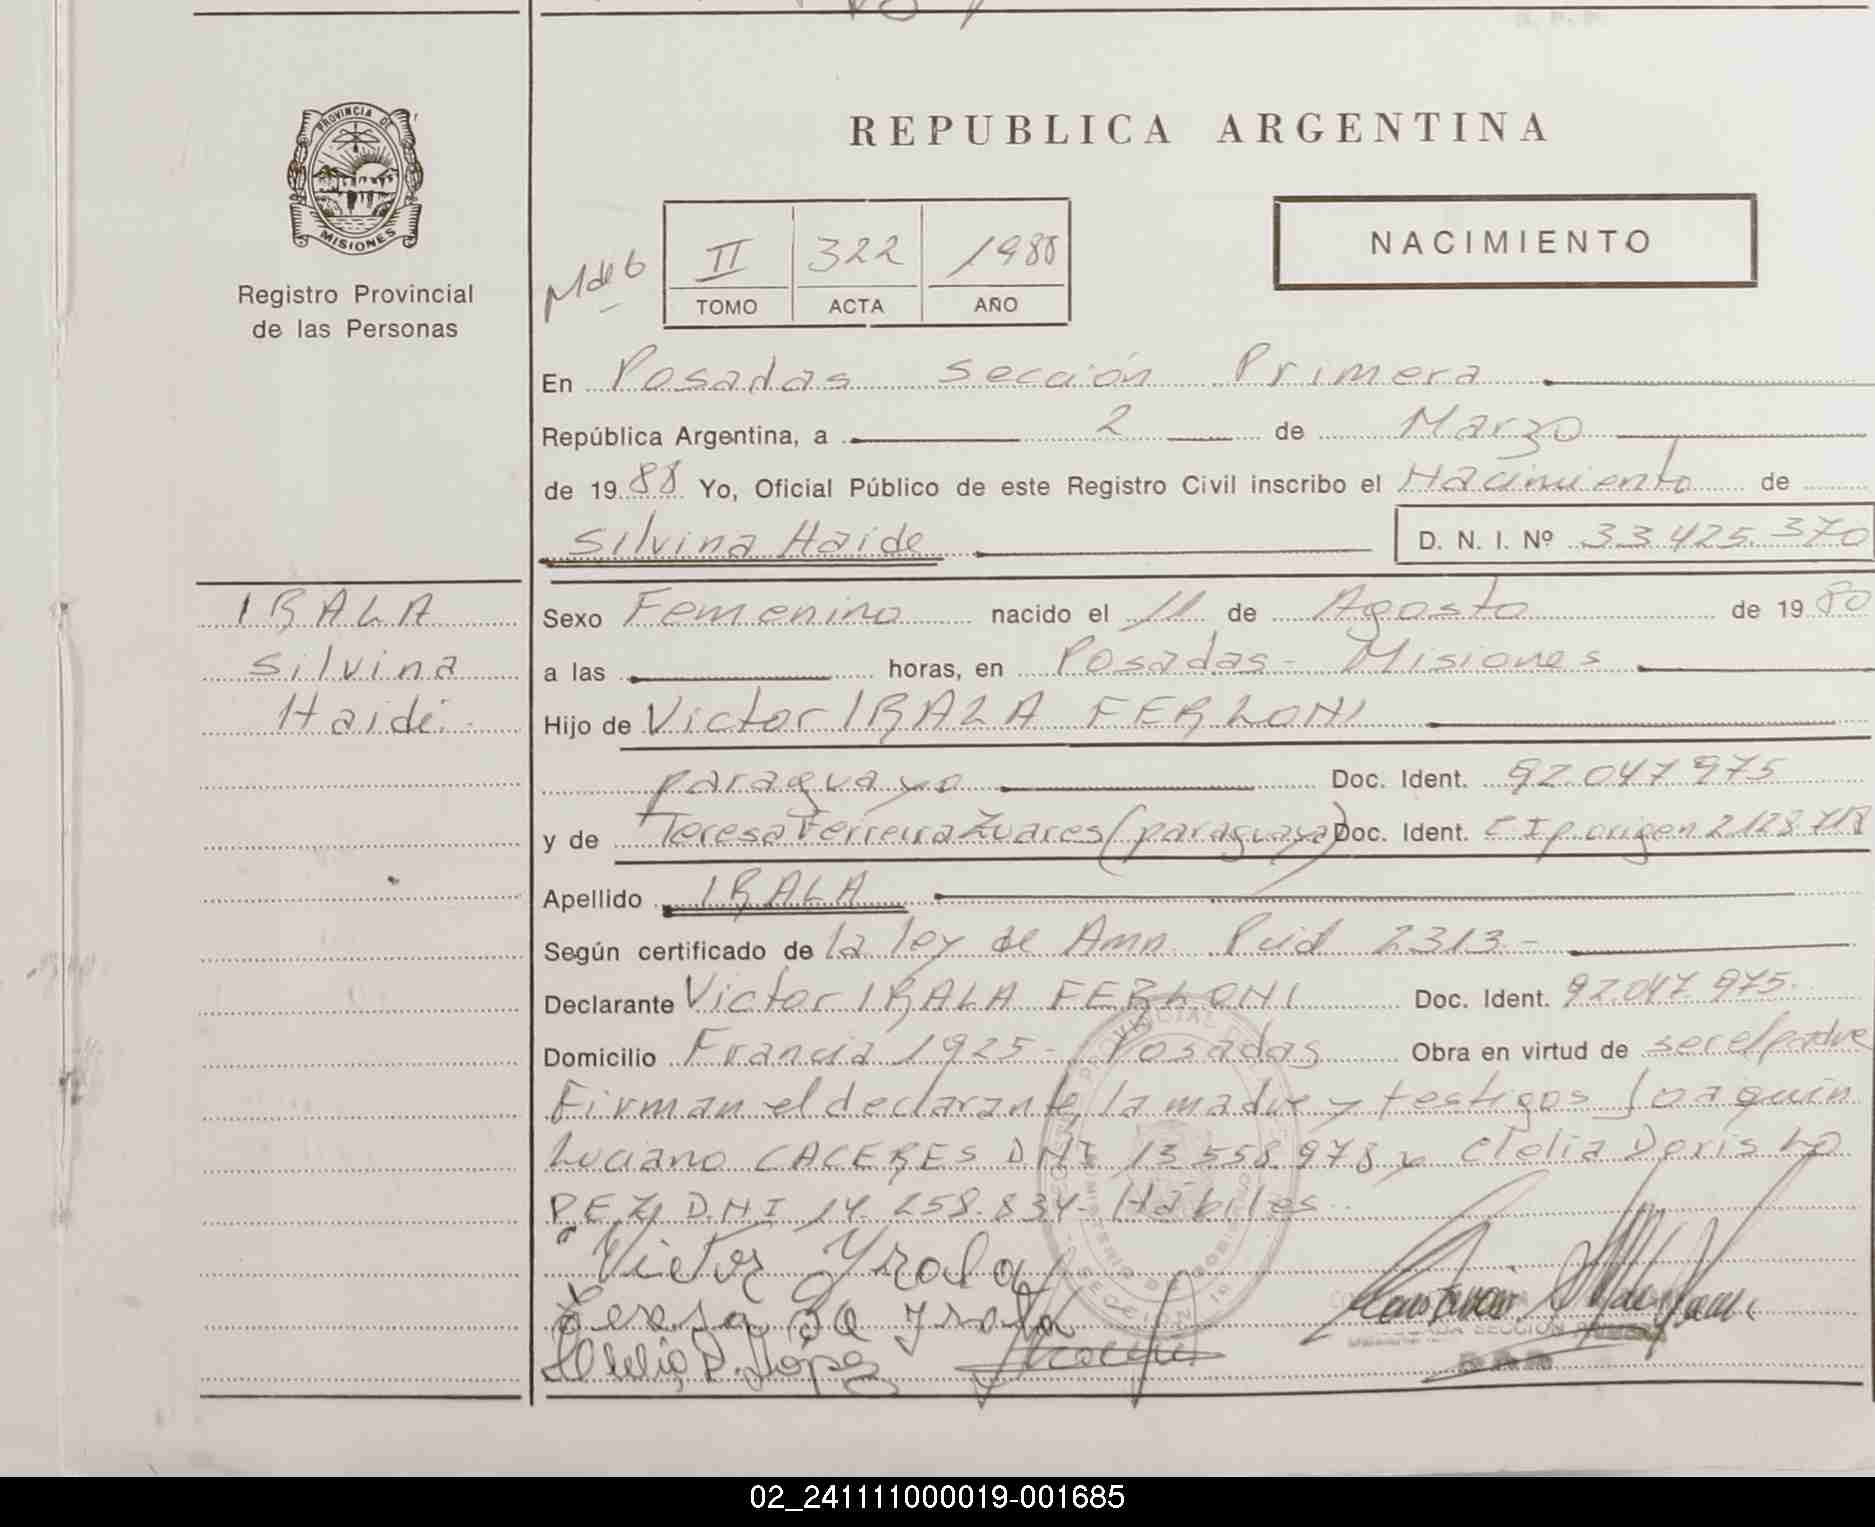 PROVINCIA DE
MISIONES
Registro Provincial
de las Personas
REPUBLICA ARGENTINA
NACIMIENTO
M de 6
II 322 1988
TOMO ACTA AÑO
En Posadas Sección Primera
República Argentina, a 2 de Marzo
de 1988 Yo, Oficial Público de este Registro Civil inscribo el Nacimiento de
Silvina Haide D. N. I. Nº 33.425.370
IRALA
Silvina
Haidé
Sexo Femenino nacido el 11 de Agosto de 1980
a las horas, en Posadas - Misiones
Hijo de Victor IRALA FERLONI
paraguayo Doc. Ident. 92.047.975
y de Teresa Ferreira Zuares (paraguaya) Doc. Ident. CIp. origen 2128718
Apellido IRALA
Según certificado de la ley de Amn. 2313.-
Declarante Victor IRALA FERLONI Doc. Ident. 92.047.975.
Domicilio Francia 1925 - Posadas Obra en virtud de ser el padre
Firman el declarante, la madre y testigos Joaquín
Luciano CACERES DNI 13.558.978 y Clelia Doris LO
PEZ D.N.I 14.258.834 - Hábiles
Victor Yrala
Teresa de Yrala
Clelia D. López
SECCION 1ª
SECCION PRIMERA
02_241111000019-001685